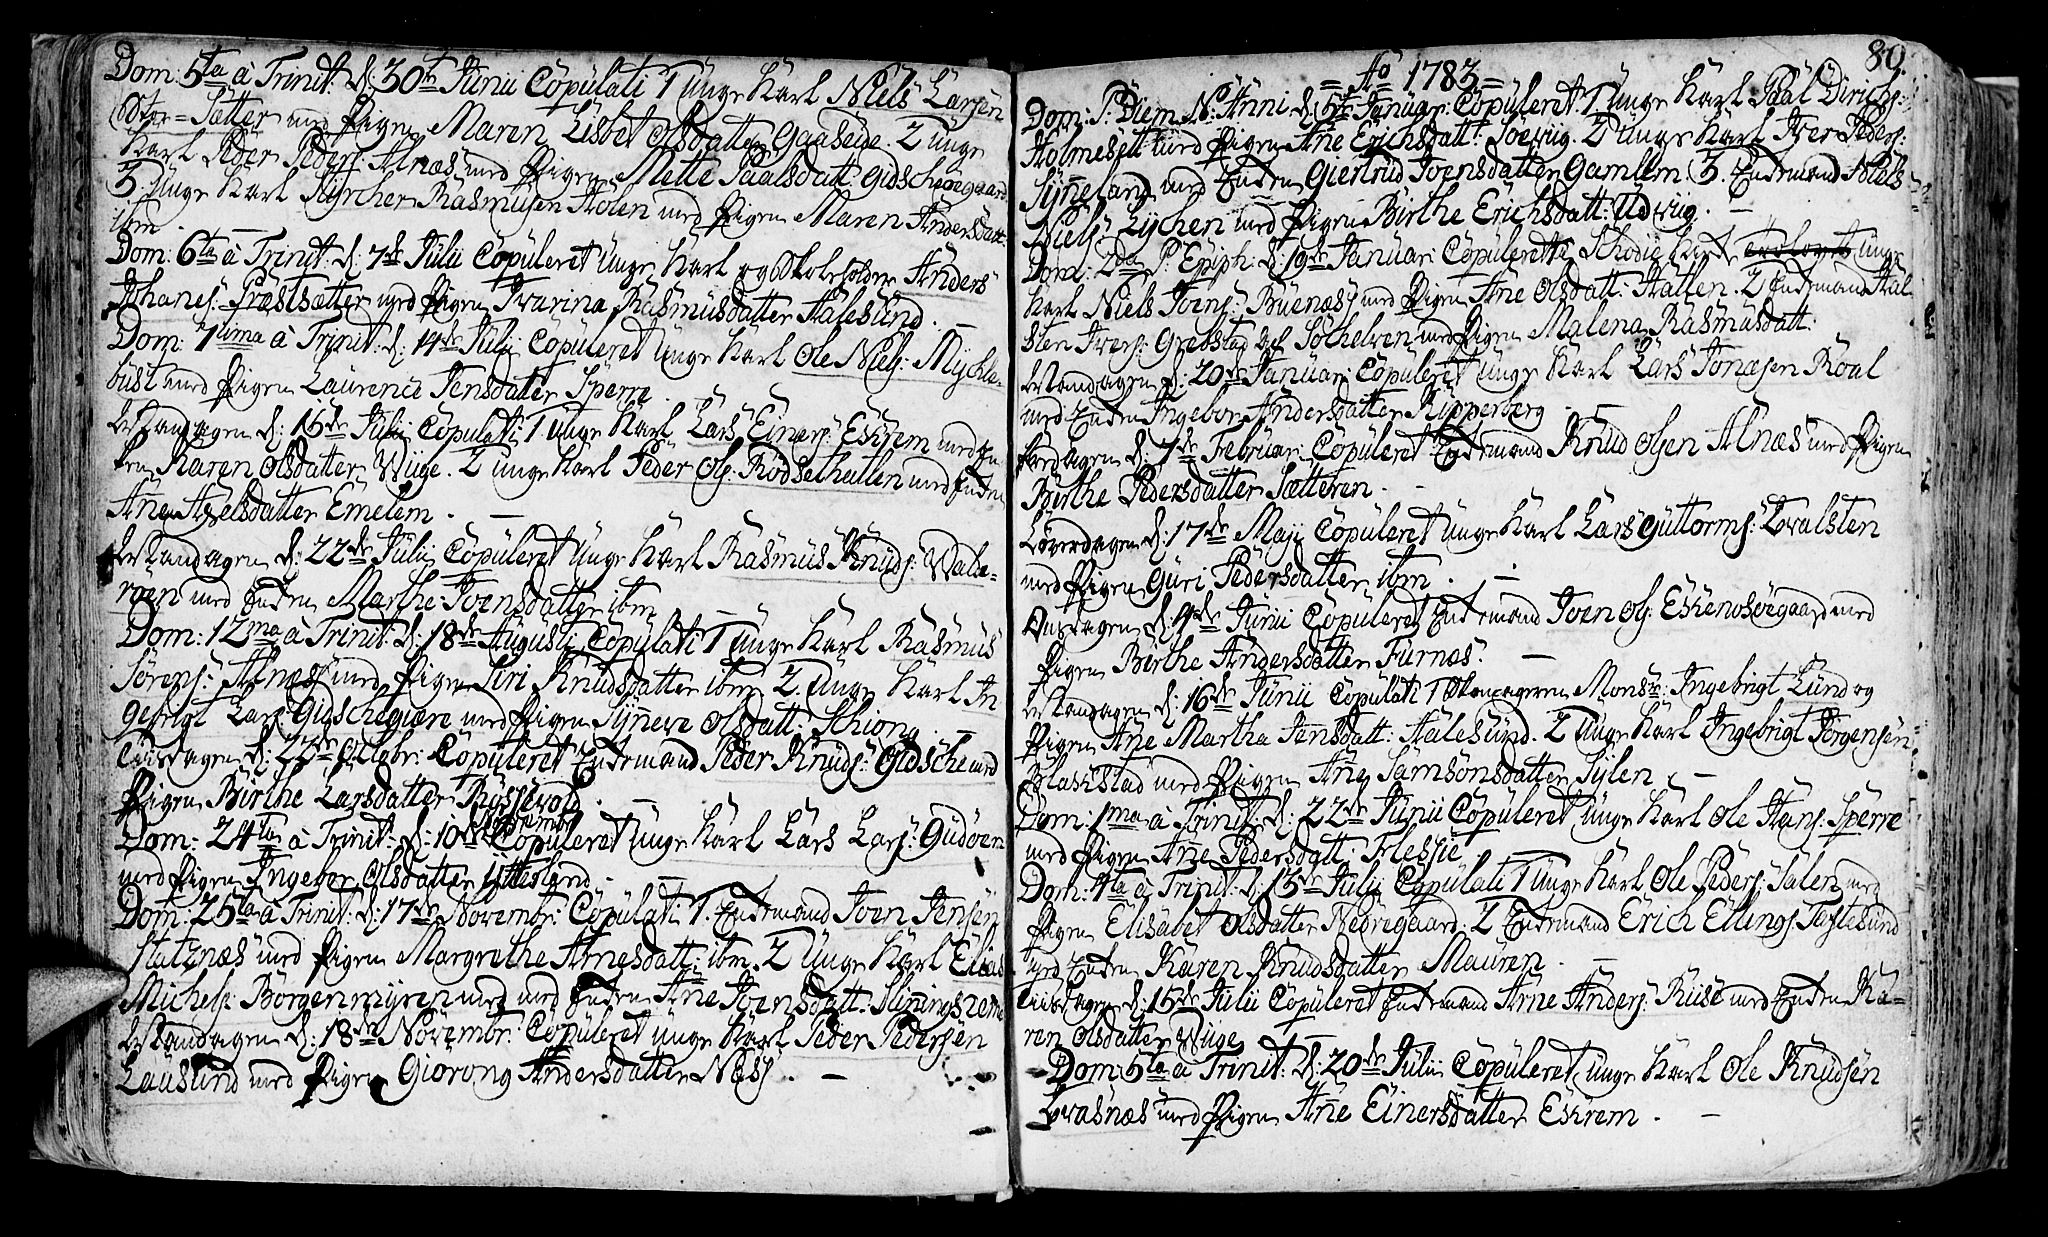 Dom: 5ta à Trinit: d: 30te Junii Copulati 1 unge Karl Niels Larsen
Otter-Sætter med Pigen Maren Lisbet Olsdatter Gaaseide. 2 unge
Karl Peder Peders: Alnæs med Pigen Mette Paalsdatt: Gidschøegaard
3. unge Karl Styrcher Rasmusen Holen med Pigen Maren Andersdatt:
ibm
Dom: 6ta à Trinit: d: 7de Julii Copuleret unge Karl og Skoleholder Anders
Johanes: Præstsætter med Pigen Ivarina Rasmusdatter Aalesund. —
Dom: 7tima à Trinit: d: 14de Julii Copuleret unge Karl Ole Niels: Mychle-
bust med Pigen Laurence Jensdatter Sperre.
Mandagen d: 15de Julii Copulati 1 unge Karl Lars Einers: Eskrem med En-
ken Karen Olsdatter Wiige. 2 unge Karl Peder Ols: Rödsethullen med Enken
Ane Axelsdatter Emelem. —
Mandagen d: 22de Julii Copuleret unge Karl Rasmus Knuds: Walde-
röen med Enken Marthe Joensdatter ibm
Dom: 12ma à Trinit: d: 18de Augusti Copulati 1 unge Karl Rasmus
Sörens: Alnæs med Pigen Siri Knudsdatter ibm 2. unge Karl In
gebrigt Lars: Gidschegiære med Pigen Syneve Olsdatt: Schiong —
Tiisdagen d: 22de Octobr: Copuleret Enkemand Peder Knuds: Gidsche med
Pigen Birthe Larsdatter Rössevold. —
Dom: 24ta à Trinit: d: 10de Novembr Copuleret unge Karl Lars Lars: Gudöen
med Pigen Ingebor Olsdatter Ytterland. —
Dom: 25ta à Trinit: d: 17de Novembr: Copulati 1. Enkemand Joen Jensen
Statznæs med Pigen Margrethe Arnesdatt: ibm. 2 unge Karl Elias
Michels: Borgenmyren med med Enken Ane Joensdatt: Slinningsrem
Mandagen d: 18de Novembr: Copuleret unge Karl Peder Pedersen
Lauslund med Pigen Giorong Andersdatter Næss. —
80.
= Ao 1783 =
Dom: P: Diem N: Anni d: 5te Januar: Copuleret 1 unge Karl Paal Dirichs:
Holmesett med Pigen Ane Erichsdatt: Söevig. 2 unge Karl Iver Peders:
Synneland med Enken Giertrud Joensdatter Gamlem 3. Enkemand Niels
Niels: Lychen med Pigen Birthe Erichsdatt: Udvig. —
Dom: 2da P: Epiph: d: 19de Januar: Copulerett i Schodie Kirke unge
Karl Niels Joens: Buenæs med Pigen Ane Olsdatt: Hatlen. 2 Enkemand Hal-
sten Ivers: Grebstad Sothelven med Pigen Malena Rasmusdatt:
Mandagen d: 20de Januar: Copuleret unge Karl Lars Jonæsen Roal
med Enken Ingebor Andersdatter Kipperberg —
Fredagen d: 7de Februar: Copuleret Enkemand Knud Olsen Alnæs med Pigen
Birthe Pedersdatter Sætteren. —
Löverdagen d: 17de Maji Copuleret unge Karl Lars Guttorms: Qvalsten
med Pigen Guri Pedersdatter ibm. —
Onsdagen d: 4de Junii Copuleret Enkemand Joen Ols: Eskenosöegaard med
Pigen Birthe Andersdatter Furnæs. —
Mandagen d: 16de Junii Copulati 1 Monsr: Ingebrigt Lund og
Pigen Ane Martha Jensdatt: Aalesund. 2 unge Karl Ingebrigt Jörgensen
Blakstad med Pigen Ane Samsonsdatter Sylen. —
Dom: 1ma à Trinit: d: 22de Junii Copuleret unge Karl Ole Hans: Sperre
med Pigen Ane Pedersdatt: Flessie —
Dom: 4ta à Trinit: d: 13de Julii Copulati 1 unge Karl Ole Peders: Salen med
Pigen Elisabet Olsdatter Nedregaard: 2 Enkemand Erich Ellings: Taftesund
med Enken Karen Knudsdatter Mauren. —
Tiisdagen d: 15de Julii Copuleret Enkemand Arne Anders: Riise med Enken Ka-
ren Olsdatter Wiige —
Dom: 5ta à Trinit: d: 20de Julii Copuleret unge Karl Ole Knudsen
Qvasnæs med Pigen Ane Einersdatter Eskrem. —